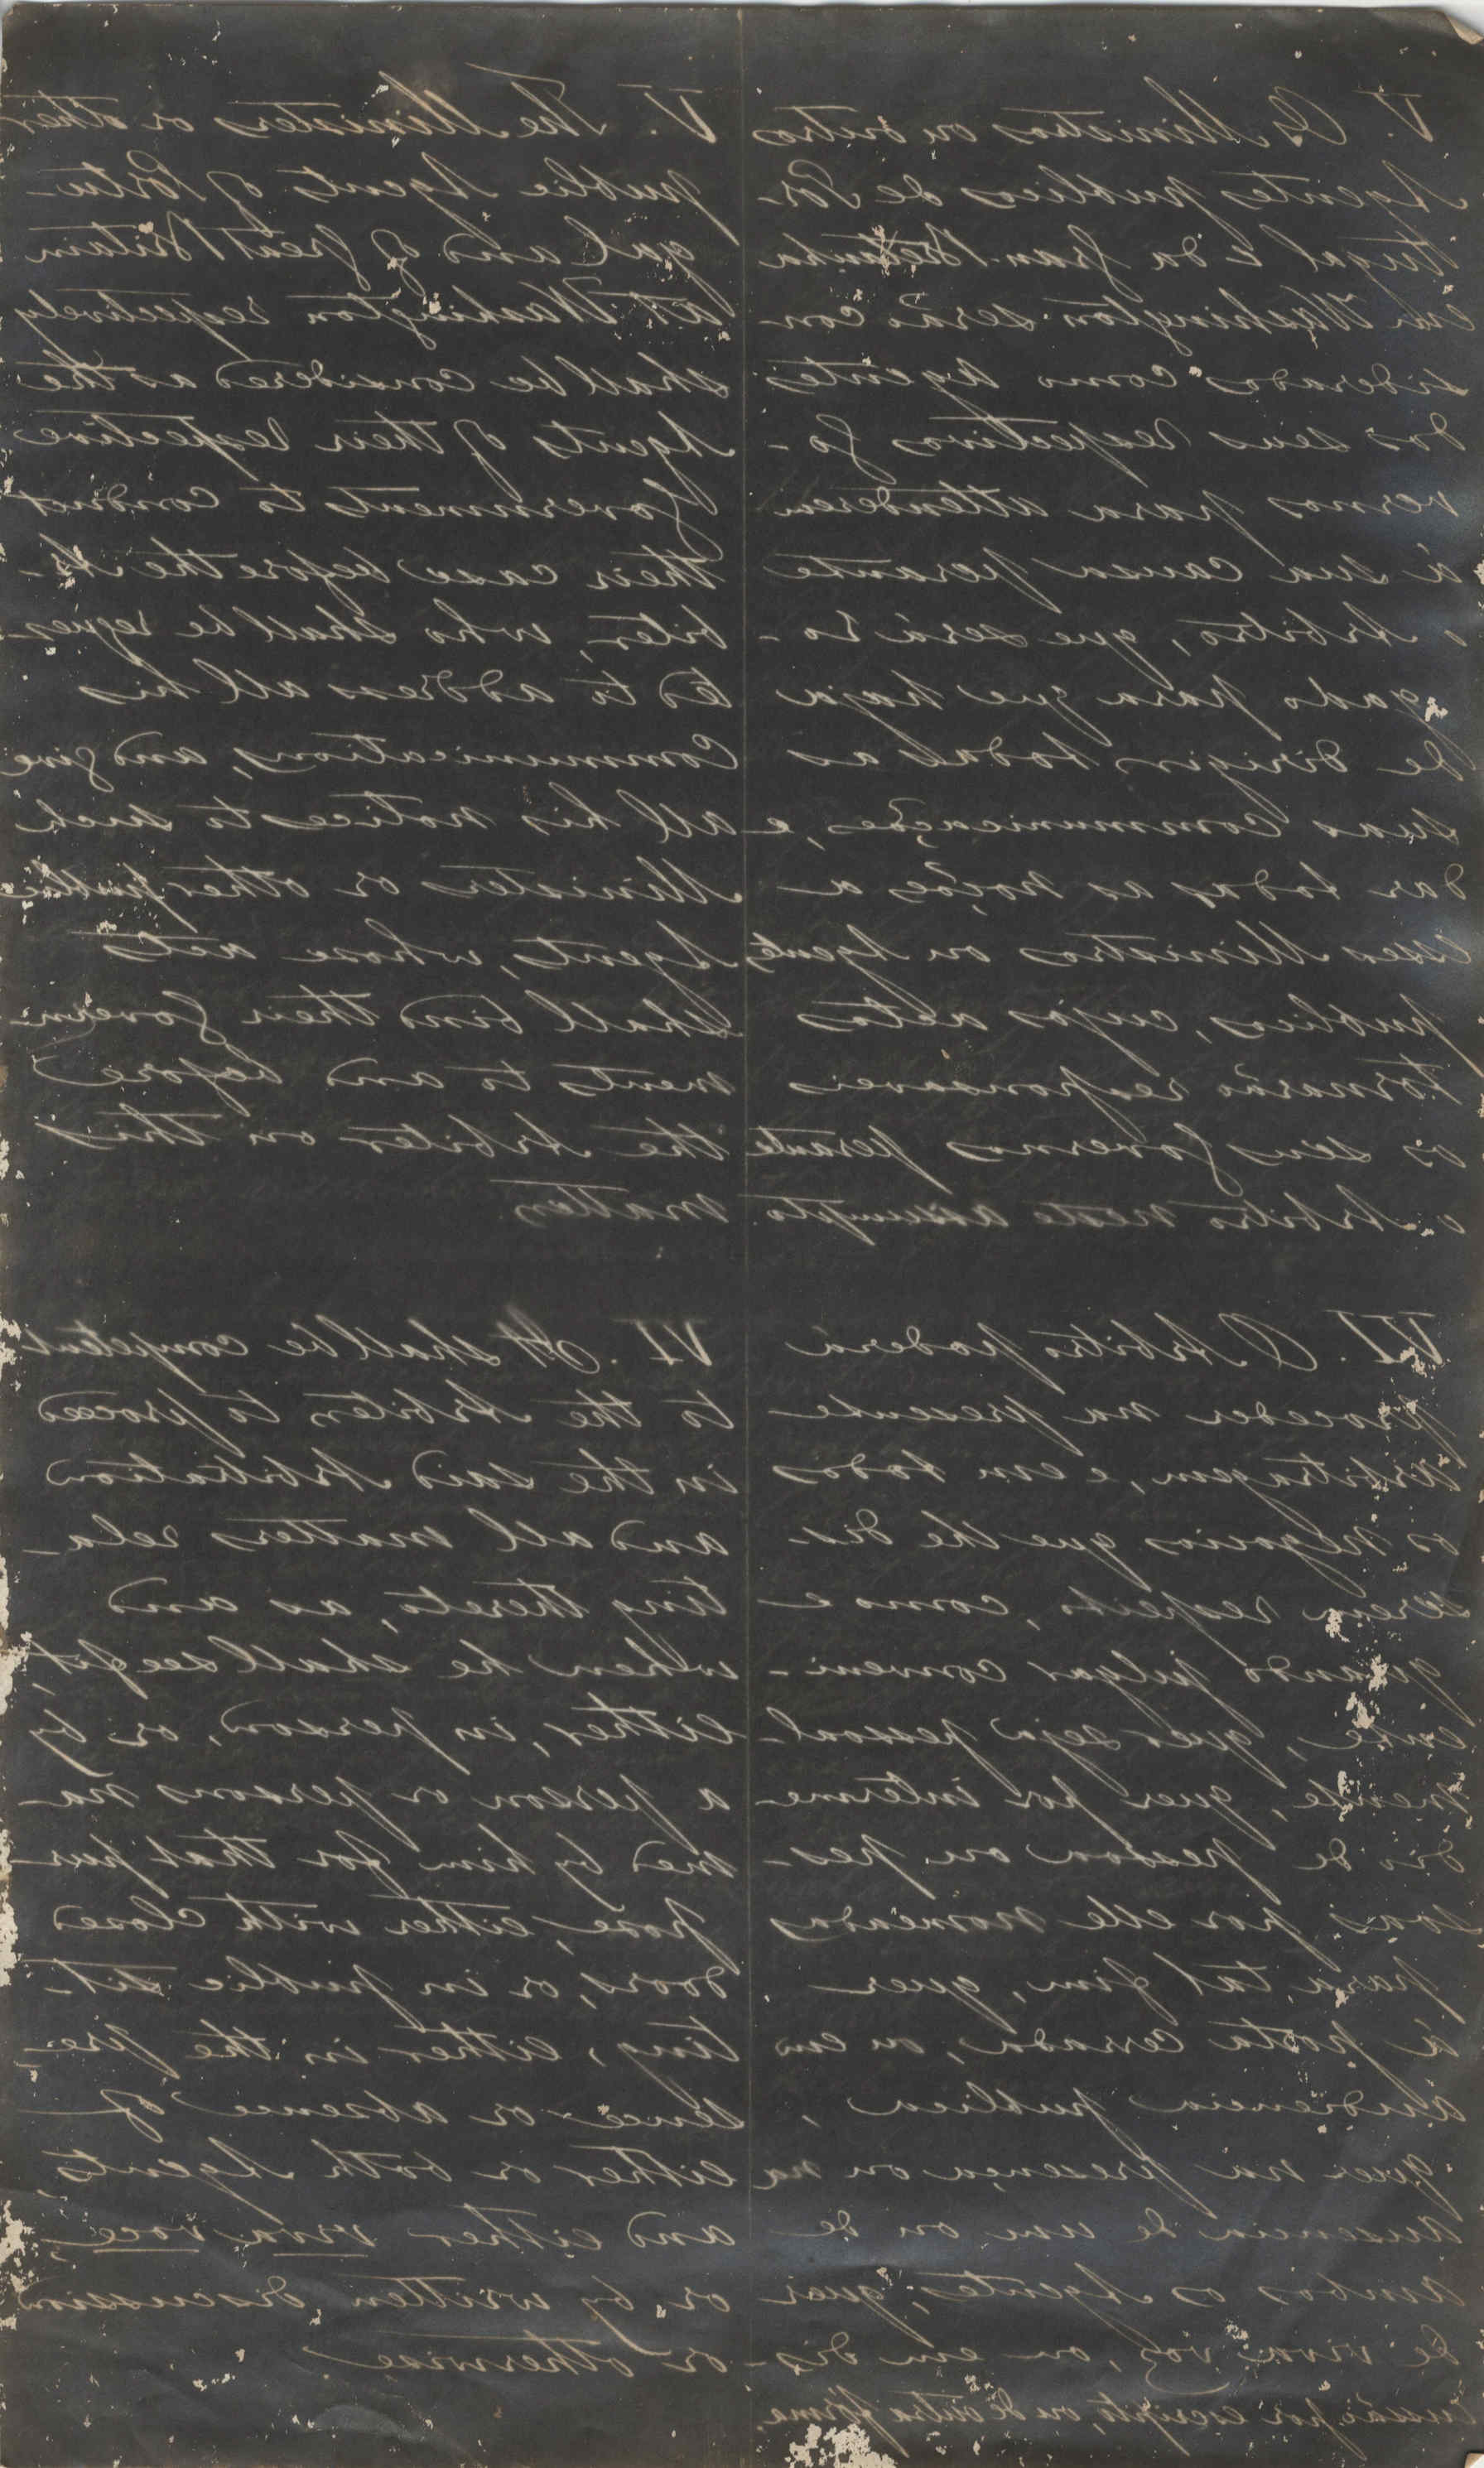 V. Os Ministros ou outros
Agentes publicos de Por-
tugal e da Gran-Bretanha
em Washington serão con-
siderados como Agentes
dos seus respectivos Go-
vernos para attenderem
á sua causa perante
o Arbitro, que será ro-
gado para que haja
de dirigir todas as
suas Communicações, e
dar todas as noções a
esses Ministros ou Agentes
publicos, cujos actos
tornarão responsaveis
os seus Governos perante
o Arbitro neste assumpto.
VI. O Arbitro poderá
proceder na presente
Arbitragem, e em todos
os negocios que lhe dis-
serem respeito, como e
quando julgar conveni-
ente, quer seja pessoal-
mente, quer por interme-
dio de pessoa ou pes-
soas por elle nomeadas
para tal fim, quer
á porta cerrada, ou em
audiencia publica,
quer na presença ou na
ausencia de um ou de
ambos os Agentes, quer
de viva voz, ou em dis-
cussão por escripto, ou de outra forma.
V. The Ministers or other
public Agents of Portu-
gal and of Great Britain
at Washington respectively
shall be considered as the
Agents of their respective
Governments to conduct
their case before the Ar-
biter, who shall be reques-
ted to address all his
Communications, and give
all his notices to such
Ministers or other public
Agents, whose acts
shall bind their Govern-
ments to and before
the Arbiter on this
matter.
VI. It shall be competent
to the Arbiter to proceed
in the said Arbitration
and all matters rela-
ting thereto, as and
when he shall see fit,
either, in person, or, by
a person or persons na-
med by him for that pur-
pose, either with closed
doors, or in public sit-
ting, either in the pre-
sence or absence of
either or both Agents,
and either viva voce,
or, by written discussion
or otherwise